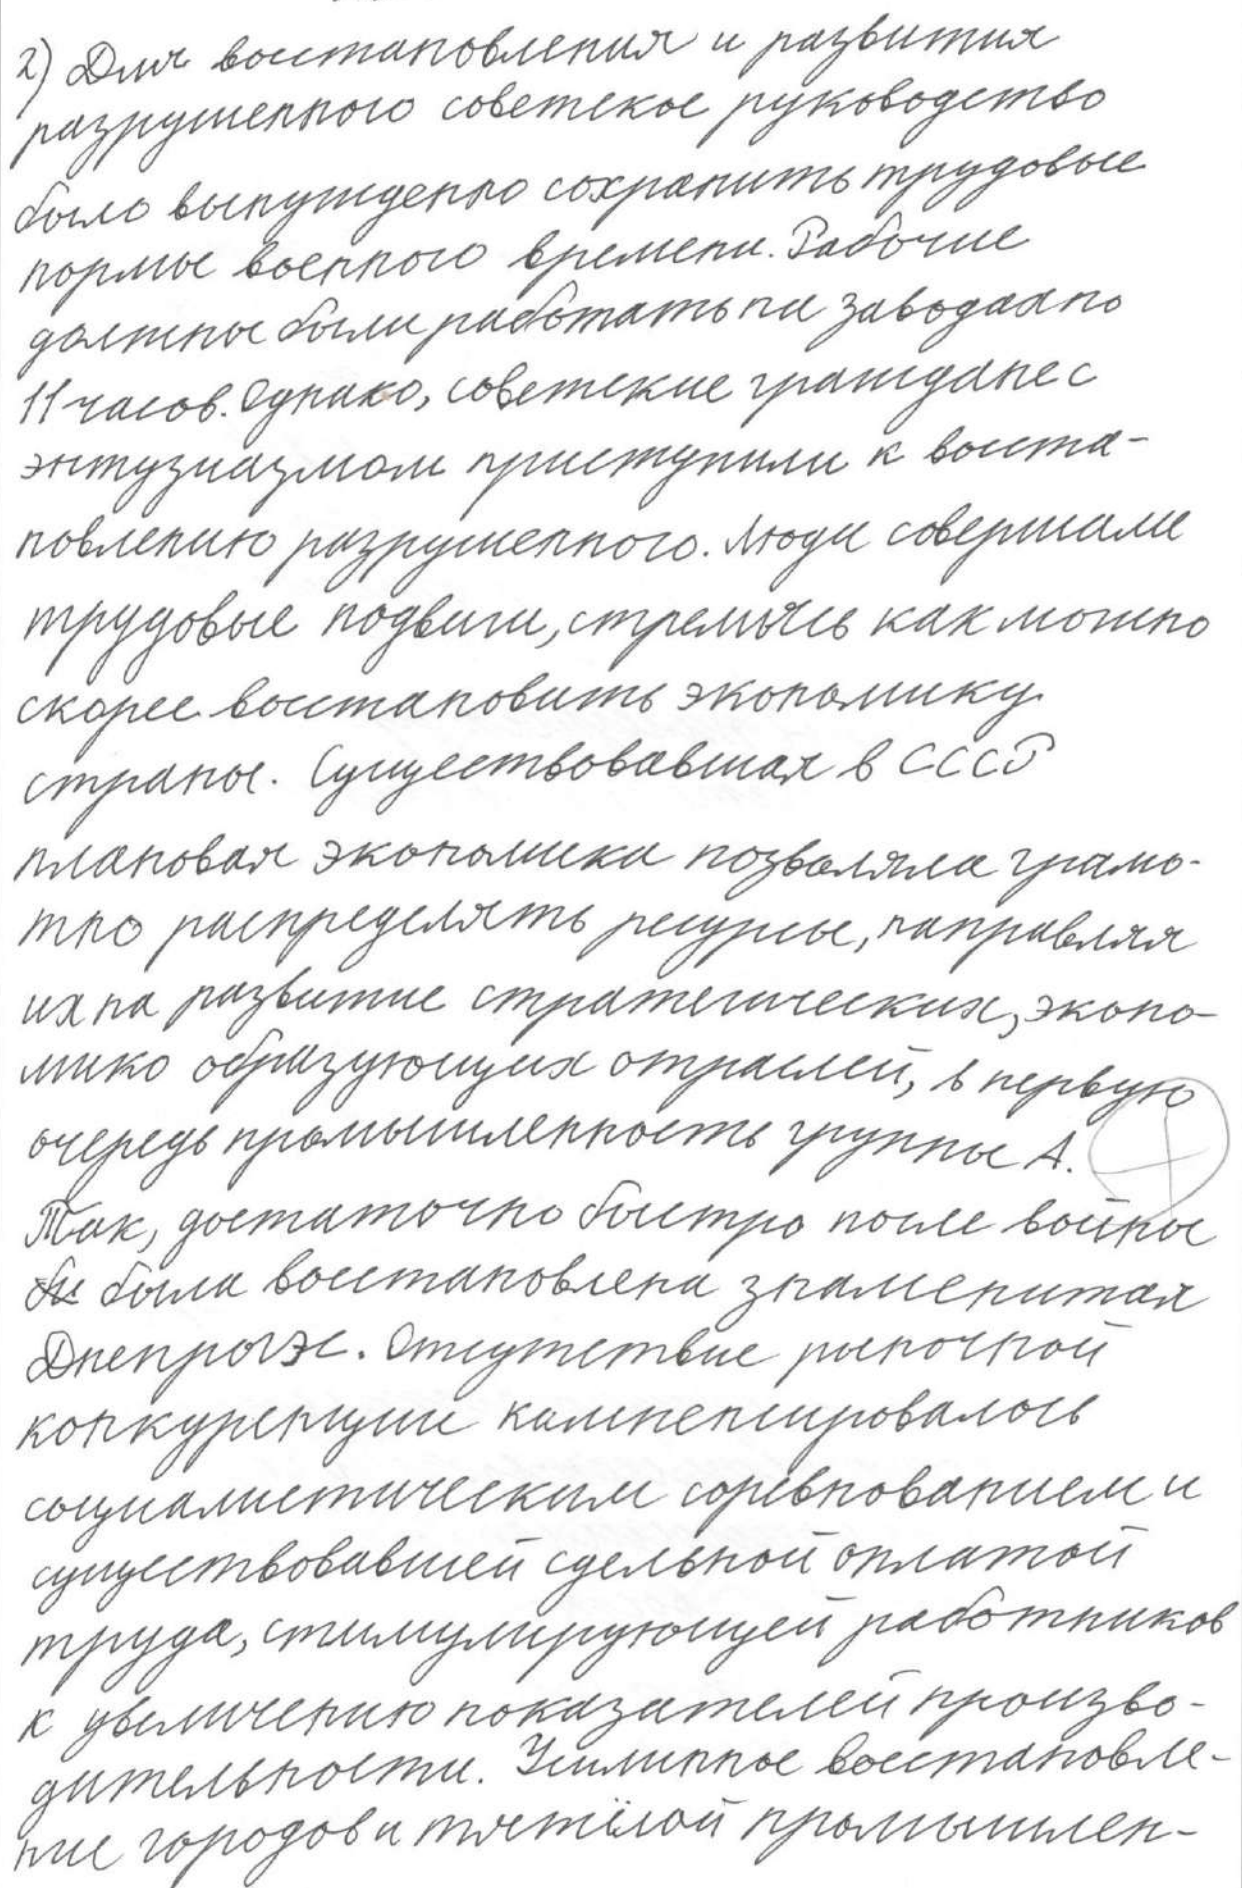 2) Для восстановления и развития
разрушенного советское руководство
было вынужденно сохранить трудовые
нормы военного времени. Рабочие
должны были работать на заводах по
11 часов. Однако, советские граждане с
энтузиазмом приступили к восста-
новлению разрушенного. Люди совершали
трудовые подвиги, стремясь как можно
скорее восстановить экономику
страны. Существовавшая в СССР
плановая экономика позволяла грамо-
тно распределять ресурсы, направляя
их на развитие стратегических, эконо-
мико образующих отраслей, в первую
очередь промышленность группы А.
Так, достаточно быстро после войны
бы была восстановлена знаменитая
ДнепроГЭС. Отсутствие рыночной
конкуренции компенсировалось
социалистическим соревнованием и
существовавшей сдельной оплатой
труда, стимулирующей работников
к увеличению показателей произво-
дительности. Усиленное восстановле-
ние городов и тяжёлой промышлен-